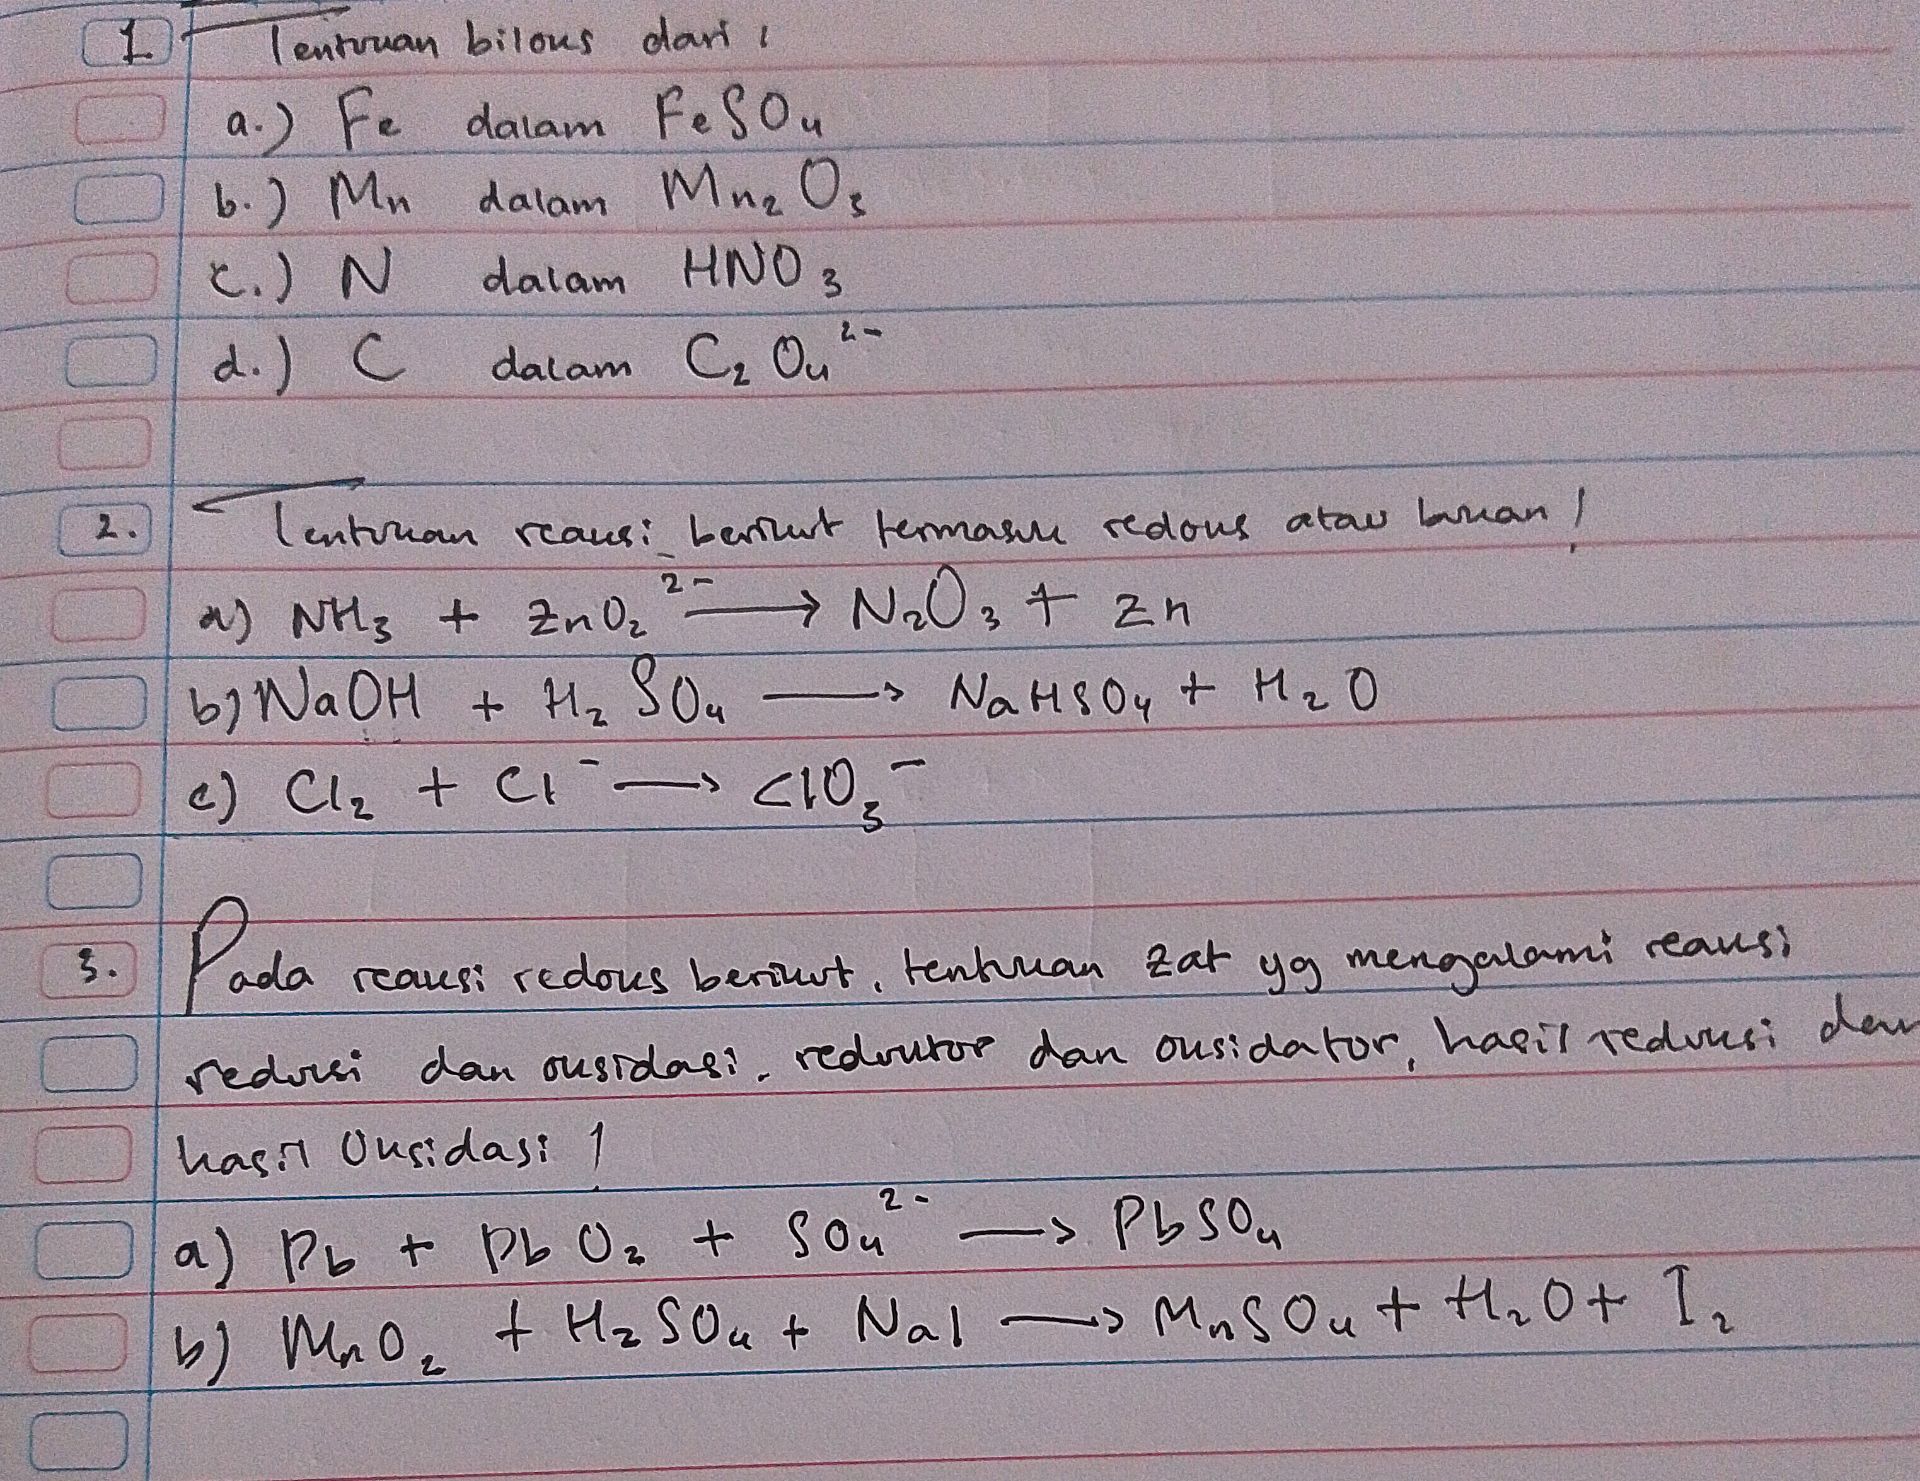 1 Tentukan biloks dari :
a.) Fe dalam FeSO₄
b.) Mn dalam Mn₂O₃
c.) N dalam HNO₃
d.) C dalam C₂O₄²⁻
2. Tentukan reaksi berikut termasuk redoks atau bukan !
a) NH₃ + ZnO₂²⁻ → N₂O₃ + Zn
b) NaOH + H₂SO₄ → NaHSO₄ + H₂O
c) Cl₂ + Cl⁻ → ClO₃⁻
3. Pada reaksi redoks berikut, tentukan zat yg mengalami reaksi
reduksi dan oksidasi, reduktor dan oksidator, hasil reduksi dan
hasil Oksidasi !
a) Pb + PbO₂ + SO₄²⁻ → PbSO₄
b) MnO₂ + H₂SO₄ + NaI → MnSO₄ + H₂O + I₂